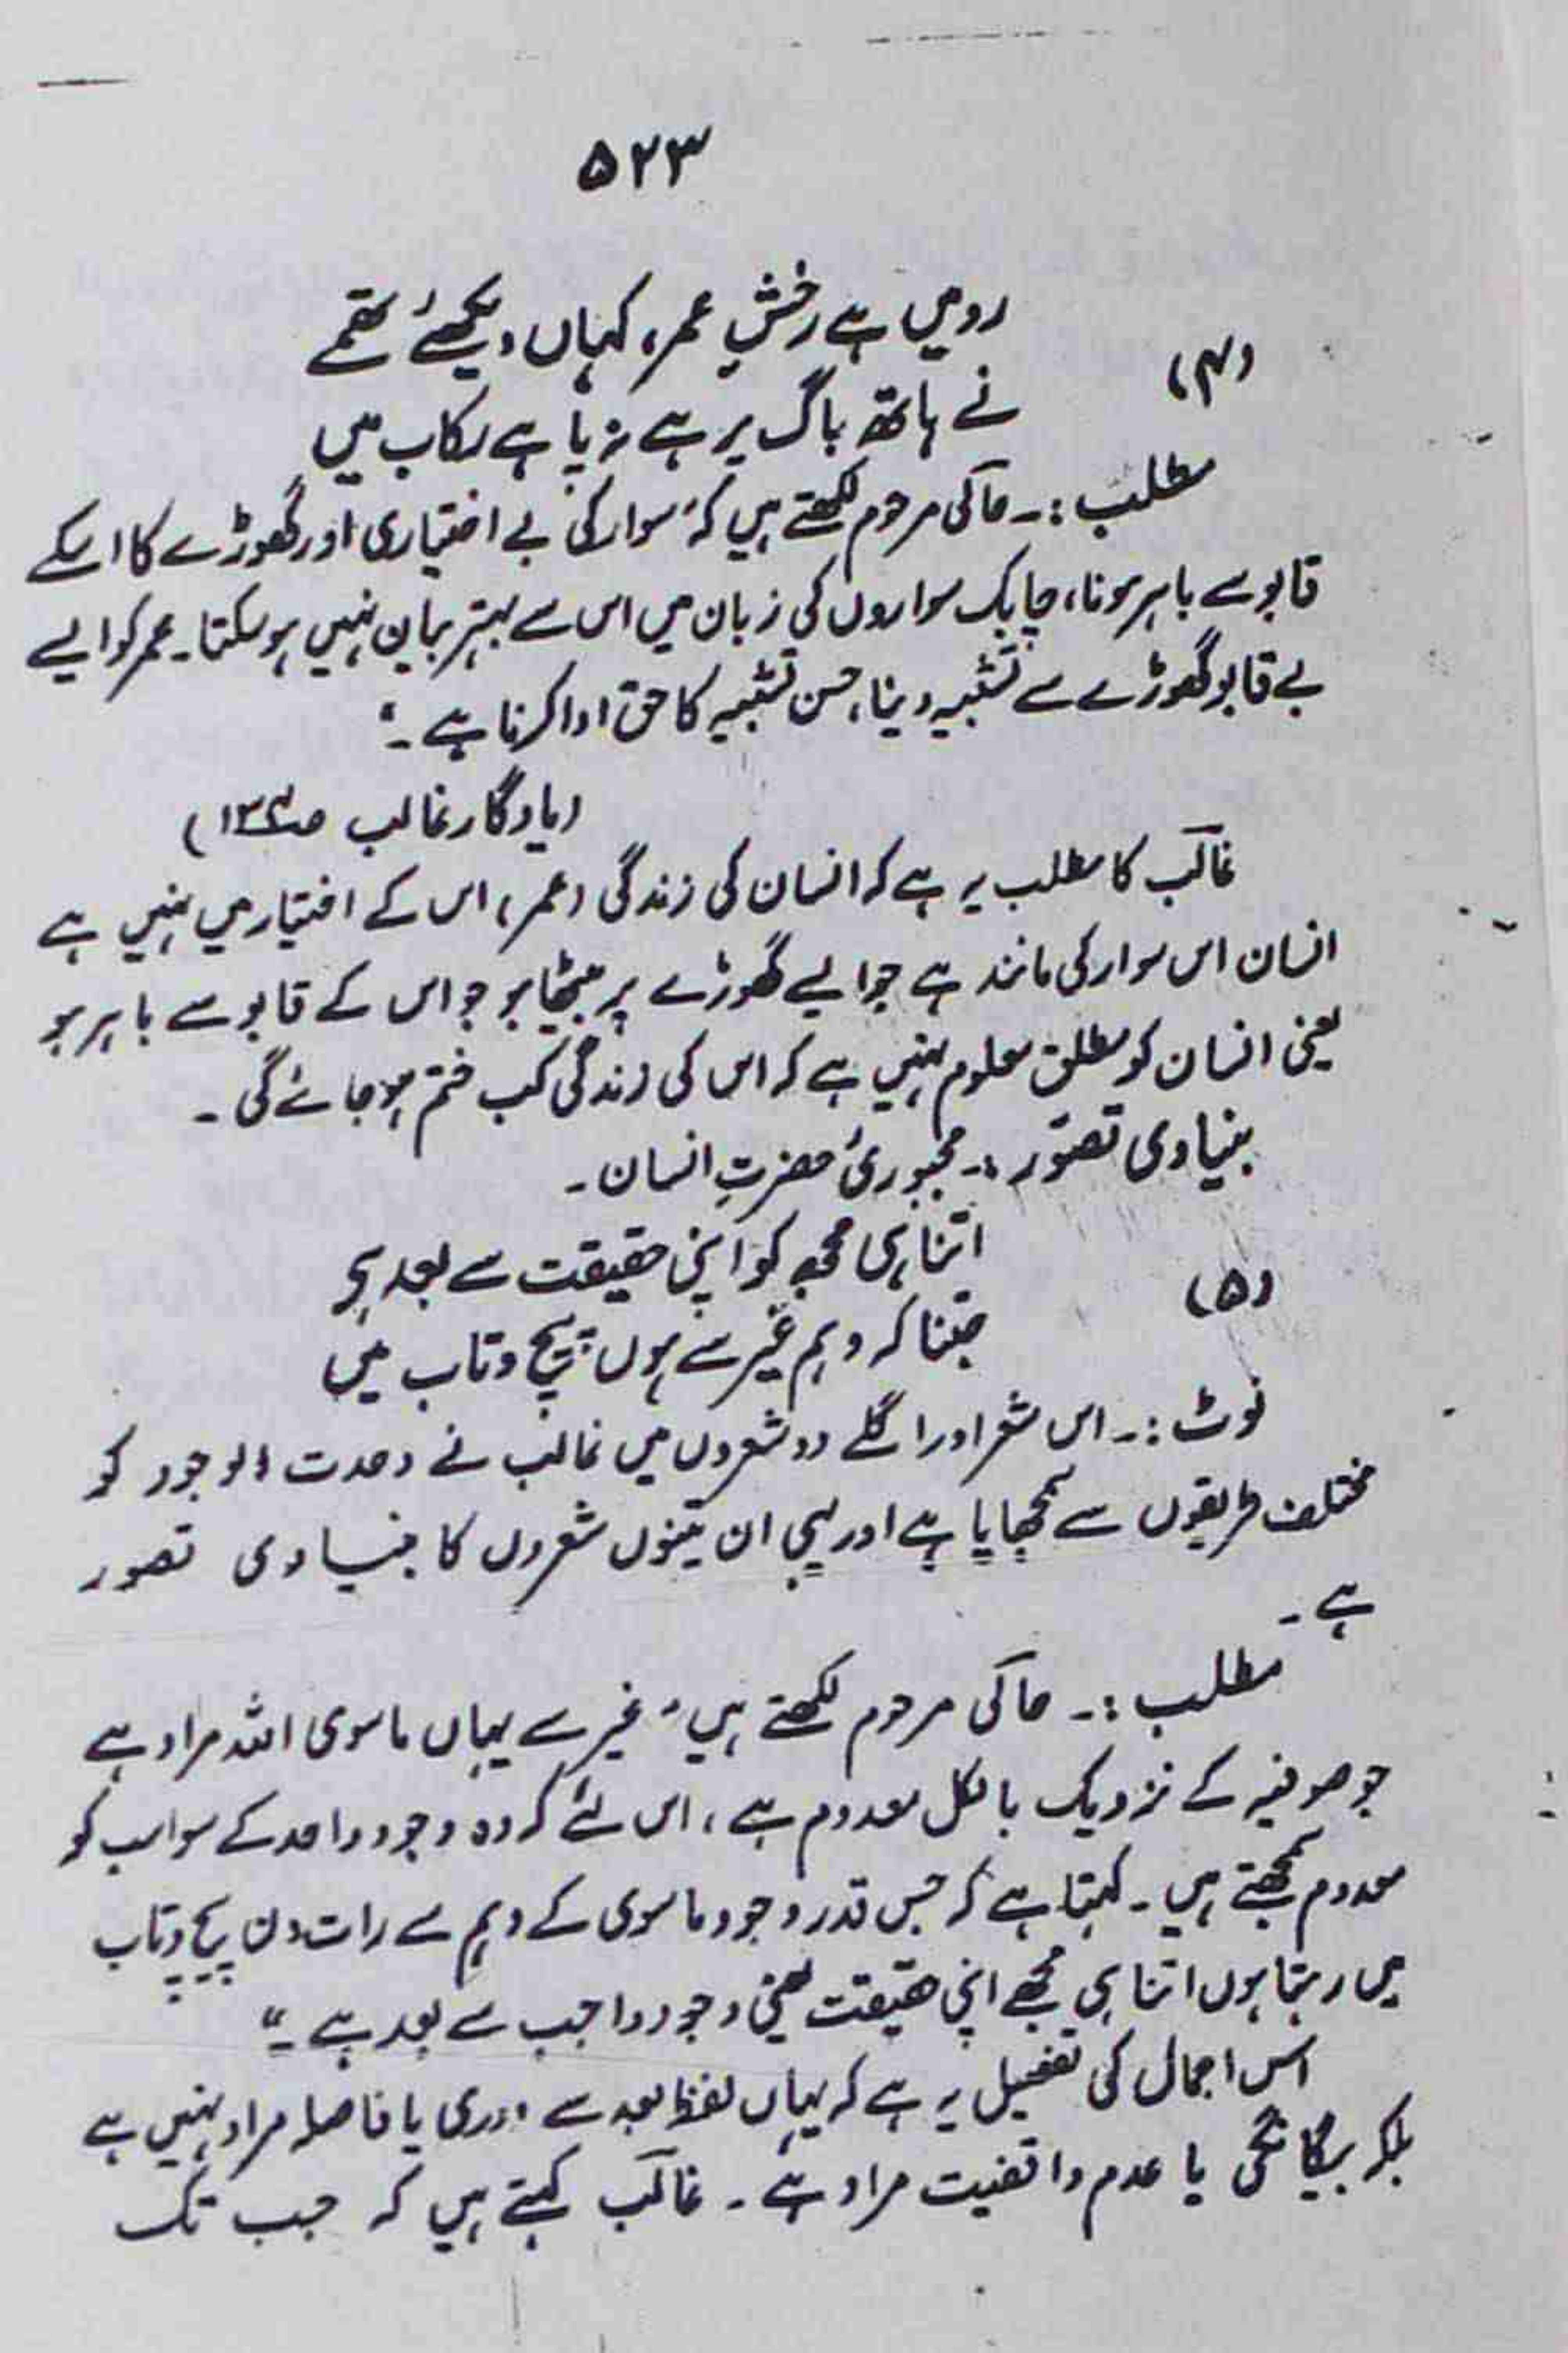 ۵۲۳
رو میں ہے رخشِ عمر، کہاں دیکھئے تھمے
(۴)
نے ہاتھ باگ پر ہے نہ پا ہے رکاب میں
مطلب :۔ حالی مرحوم لکھتے ہیں کہ "سوار کی بے اختیاری اور گھوڑے کا اسکے
قابو سے باہر ہونا، چابک سواروں کی زبان میں اس سے بہتر بیان نہیں ہو سکتا۔ عمر کو ایسے
بے قابو گھوڑے سے تشبیہ دینا، حسن تشبیہ کا حق ادا کرنا ہے ۔"
(یادگار غالب ص)
غالب کا مطلب یہ ہے کہ انسان کی زندگی (عمر) اس کے اختیار میں نہیں ہے
انسان اس سوار کی مانند ہے جو ایسے گھوڑے پر بیٹھا ہو جو اس کے قابو سے باہر ہو
یعنی انسان کو مطلق معلوم نہیں ہے کہ اس کی زندگی کب ختم ہو جائے گی ۔
بنیادی تصوّر :۔ مجبوریٔ حضرتِ انسان ۔
اتنا ہی مجھ کو اپنی حقیقت سے بعد ہے
(۵)
جتنا کہ وہم غیر سے ہوں پیچ و تاب میں
نوٹ :۔ اس شعر اور اگلے دو شعروں میں غالب نے وحدت الوجود کو
مختلف طریقوں سے سمجھایا ہے اور یہی ان تینوں شعروں کا بنیادی تصور
ہے ۔
مطلب :۔ حالی مرحوم لکھتے ہیں "غیر سے یہاں ماسوی اللہ مراد ہے
جو صوفیہ کے نزدیک بالکل معدوم ہے، اس لئے کہ وہ وجود واحد کے سوا سب کو
معدوم سمجھتے ہیں ۔ کہتا ہے کہ جس قدر وجود ماسوی کے وہم سے رات دن پیچ و تاب
میں رہتا ہوں اتنا ہی مجھے اپنی حقیقت یعنی وجود واجب سے بعد ہے ۔"
اس اجمال کی تفصیل یہ ہے کہ یہاں لفظ بعد سے دوری یا فاصلہ مراد نہیں ہے
بلکہ بیگانگی یا عدم واقفیت مراد ہے ۔ غالب کہتے ہیں کہ جب تک